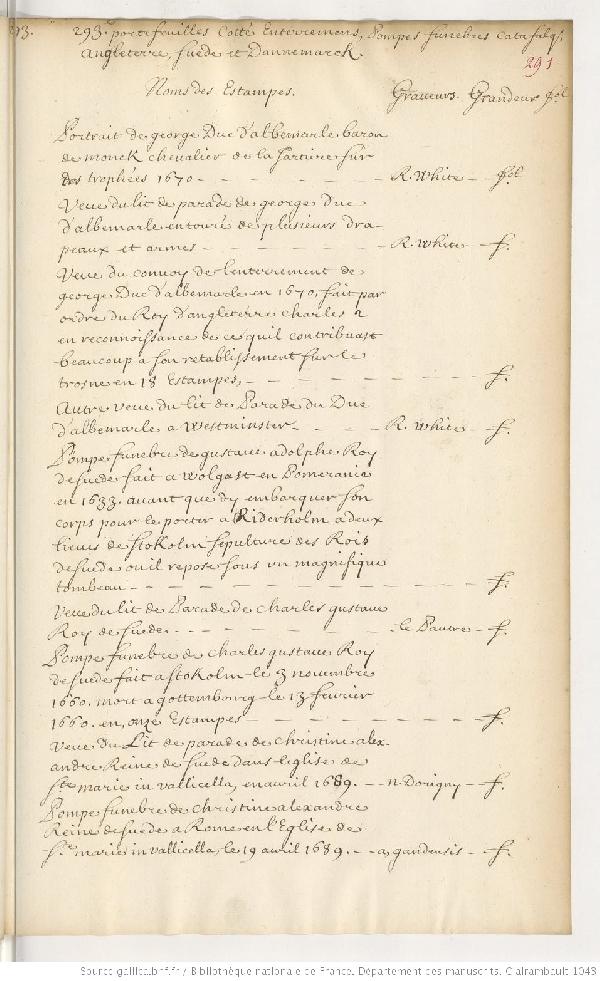 293.
293.e portefeuilles Cotté Enterremens, Pompes funebres Catafalqs.
Angleterre, suede et Dannemarck.
291
Noms des Estampes. Graveurs. Grandeur fol
Portrait de george Duc d'albemarle baron
de monck chevalier de la Jartiere sur
des trophées 1670 - - - - R. White - fol
Veue du lit de parade de george Duc
d'albemarle entouré de plusieurs dra-
peaux et armes - - - - R. White - f.
Veue du convoy de l'enterrement de
george Duc d'albemarle en 1670, fait par
ordre du Roy d'angleterre charles 2
en reconnoissance de ce quil contribuast
beaucoup a son retablissement sur le
trosne en 18 Estampes, - - - - f.
Autre veue du lit de Parade du Duc
d'albemarle a Westminster - - - R. White - f.
Pompe funebre de gustave adolphe Roy
de suede fait a Wolgast en Pomeranie
en 1633. avant que d'y embarquer son
corps pour le porter a Riderholm a deux
lieues de stokolm sepulture des Rois
de suede ou il repose sous un magnifique
tombeau - - - - f.
Veue du lit de Parade de charles gustave
Roy de suede. - - - - le Pautre - f.
Pompe funebre de charles gustave Roy
de suede fait a stokolm le 3 novembre
1660. mort a gottembourg le 13 fevrier
1660. en, onze Estampes - - - - f.
Veue du Lit de parade de christine alex-
andre Reine de suede dans l'eglise de
ste marie in vallicella, en avril 1689. - n. Dorigny - f.
Pompe funebre de christine alexandre
Reine de suede a Rome en l'Eglise de
ste marie in vallicella, le 19 avril 1689. - a gandensis - f.
Source gallica.bnf.fr / Bibliothèque nationale de France. Département des manuscrits. Clairambault 1043